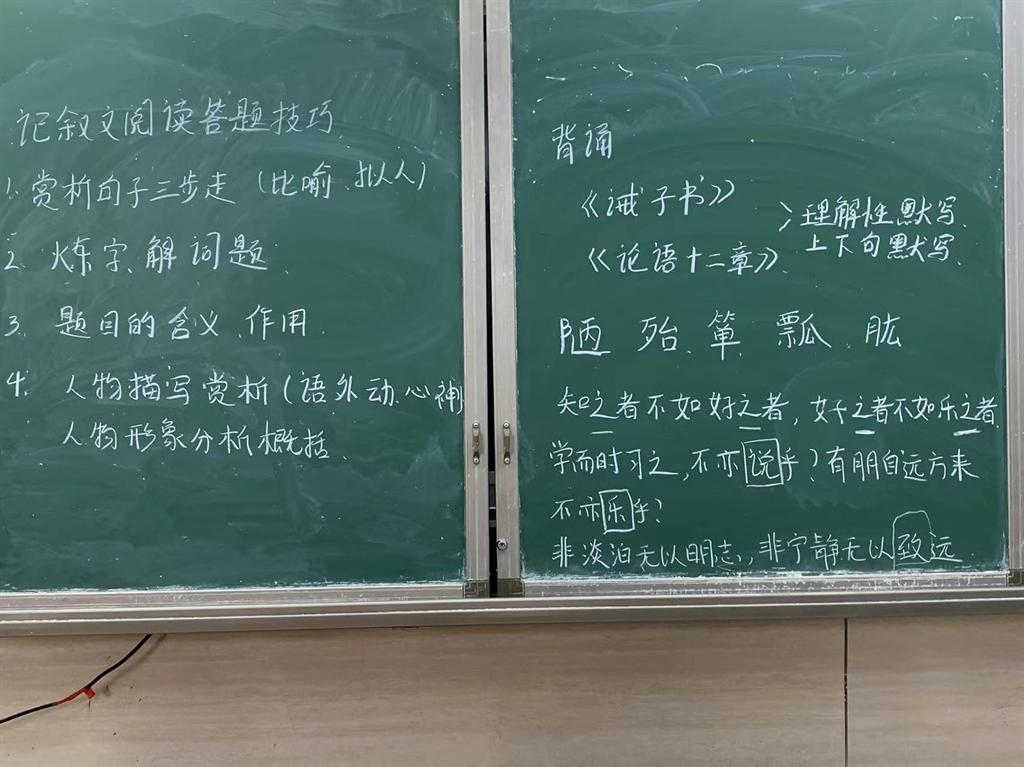 记叙文阅读答题技巧
1. 赏析句子三步走（比喻、拟人）
2. 炼字、解词题
3. 题目的含义、作用
4. 人物描写赏析（语外动、心神
人物形象分析概括
背诵
《诫子书》
《论语十二章》
>理解性默写
上下句默写
陋 殆、箪、瓢、肱
知之者不如好之者，好之者不如乐之者
学而时习之，不亦说乎？有朋自远方来
不亦乐乎？
非淡泊无以明志，非宁静无以致远